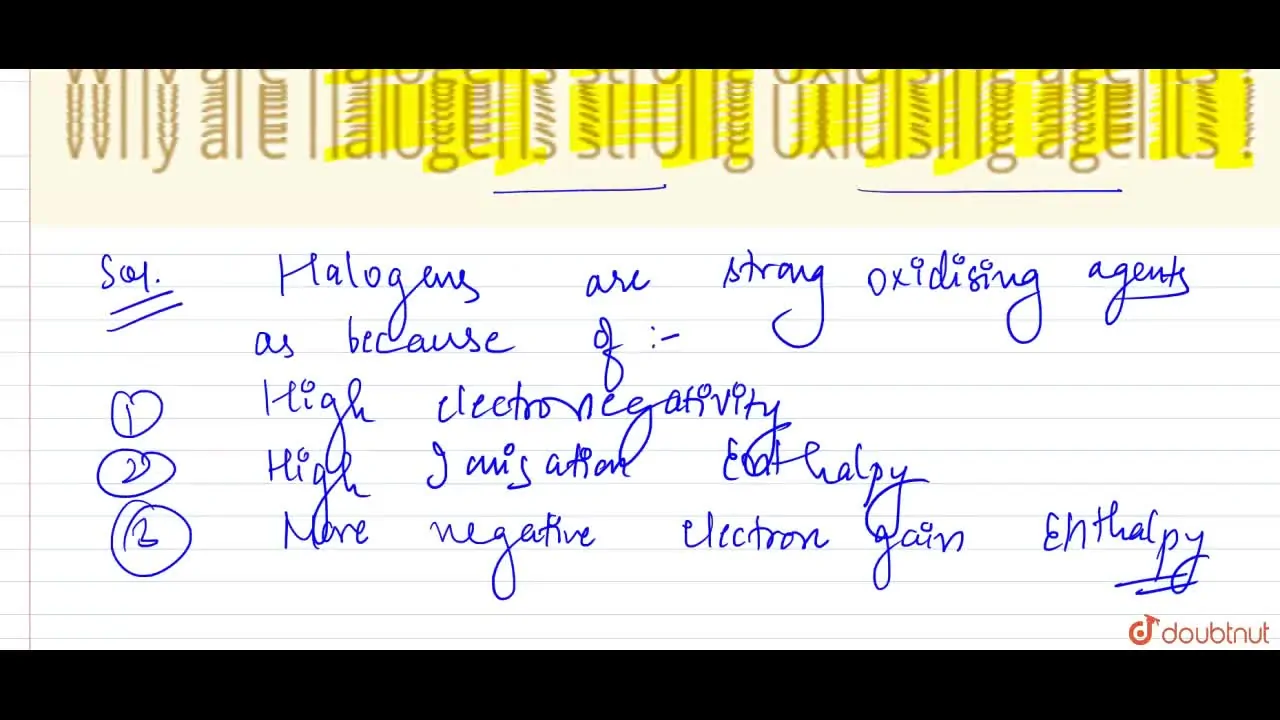 Why are halogens strong oxidising agents ?
Sol. Halogens are strong oxidising agents
as because of :-
① High electronegativity
② High Ionisation Enthalpy
③ More negative electron gain Enthalpy
doubtnut